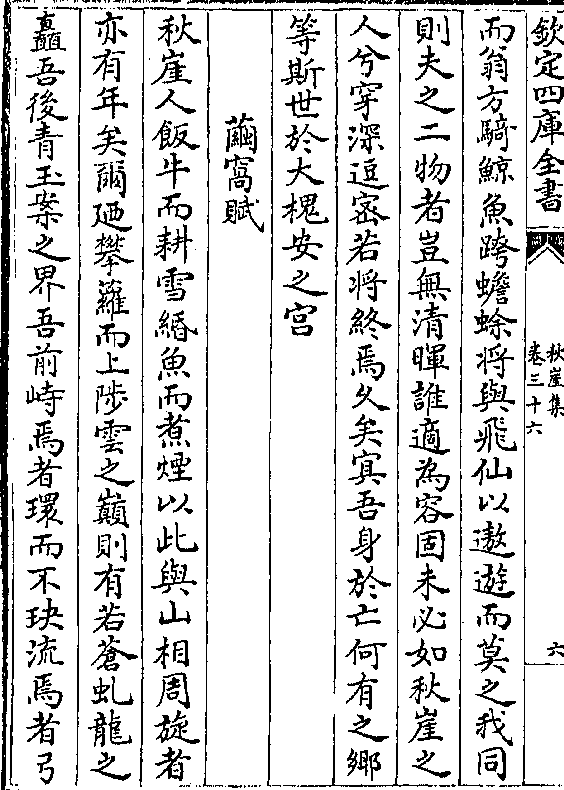 欽定四庫全書
秋崖集
卷三十六
六
而翁方騎鯨魚跨蟾蜍将與飛仙以遨遊而莫之我同
則夫之二物者豈無清暉誰適為容固未必如秋崖之
人兮穿深逗密若将終焉久矣寘吾身於亡何有之鄉
等斯世於大槐安之宫
繭窩賦
秋崖人飯牛而耕雪緡魚而煮煙以此與山相周旋者
亦有年矣爾廼攀蘿而上陟雲之巔則有若蒼虬龍之
矗吾後青玉案之界吾前峙焉者環而不玦流焉者弓